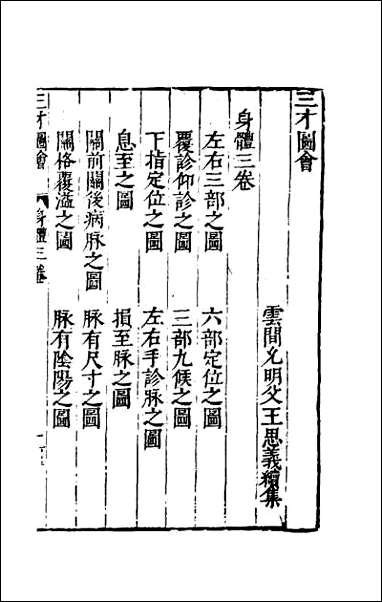 三才圖會
雲間允明父王思義續集
身體三卷
左右三部之圖　六部定位之圖
覆診仰診之圖　三部九候之圖
下指定位之圖　左右手診脉之圖
息至之圖　損至脉之圖
關前關後病脉之圖　脉有尺寸之圖
關格覆溢之圖　脉有陰陽之圖
三才圖會　身體三卷　一